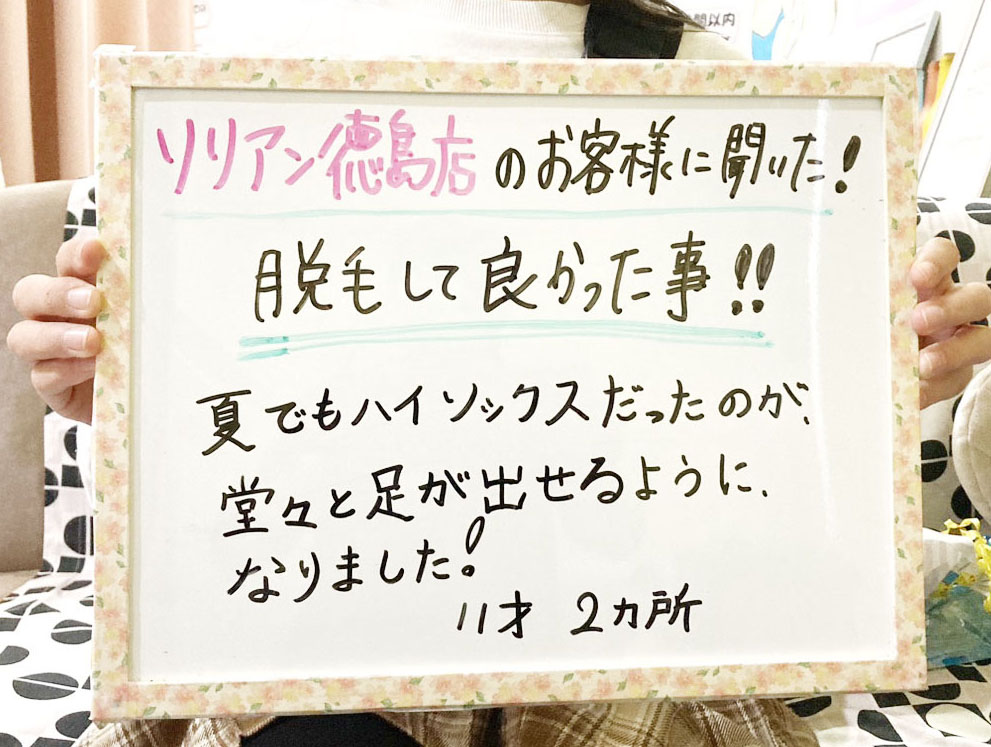 間以内
ソリアン徳島店のお客様に聞いた!
脱毛して良かった事!!
夏でもハイソックスだったのが、
堂々と足が出せるように、
なりました!
11才 2カ所